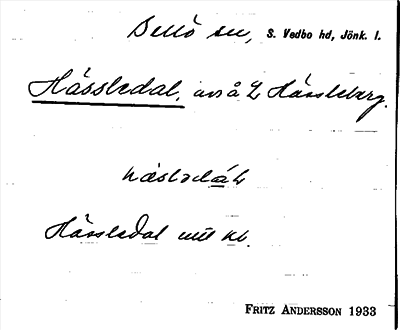 Bellö sn, S. Vedbo hd, Jönk. l.
Hässledal, avs å Hässleberg.
Hässledal utl kb.
FRITZ ANDERSSON 1933